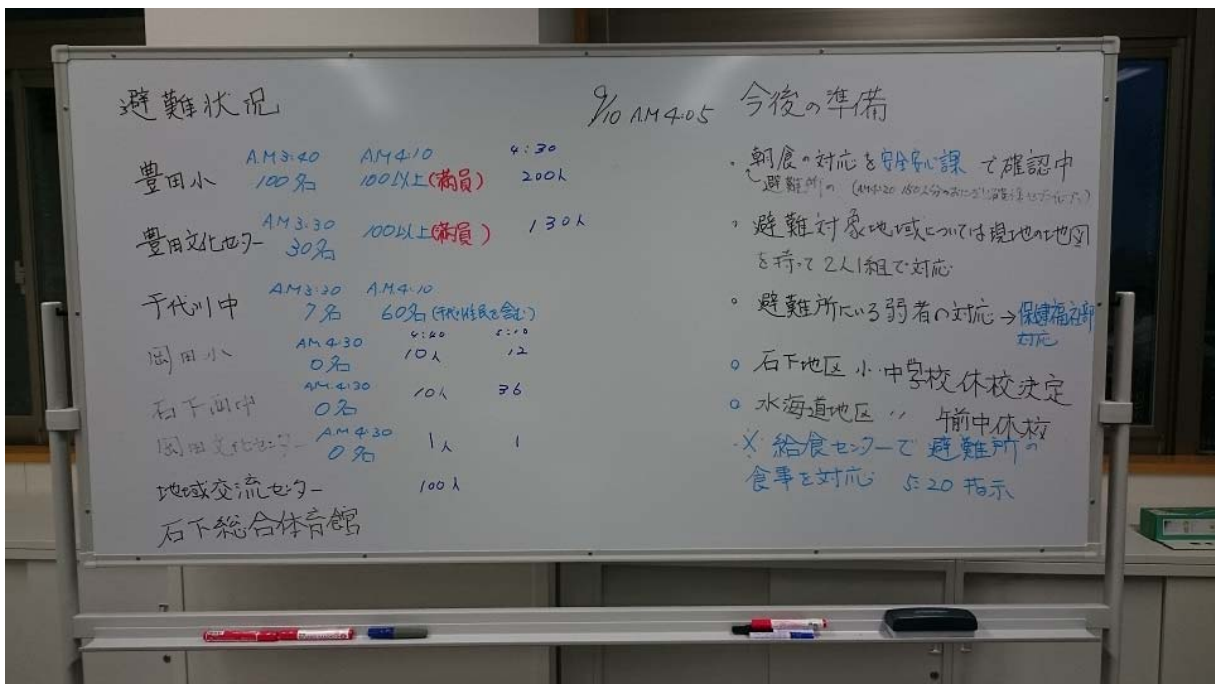 避難状況
9/10 AM 4:05
豊田小 AM3:40 100名 AM4:10 100以上(満員) 4:30 200人
豊田文化センター AM3:30 30名 100以上(満員) 130人
千代川中 AM3:30 7名 AM4:10 60名
岡田小 AM4:30 0名 4:40 10人 5:10 12
石下西中 AM4:30 0名 10人 36
岡田文化センター AM4:30 0名 1人 1
地域交流センター 100人
石下総合体育館
今後の準備
・朝食の対応を安全安心課で確認中
避難所の
・避難対象地域については現地の地図
を持って2人1組で対応
・避難所にいる弱者の対応→保健福祉部
対応
○石下地区 小・中学校休校決定
○水海道地区 〃 午前中休校
※給食センターで避難所の
食事を対応 5:20 指示